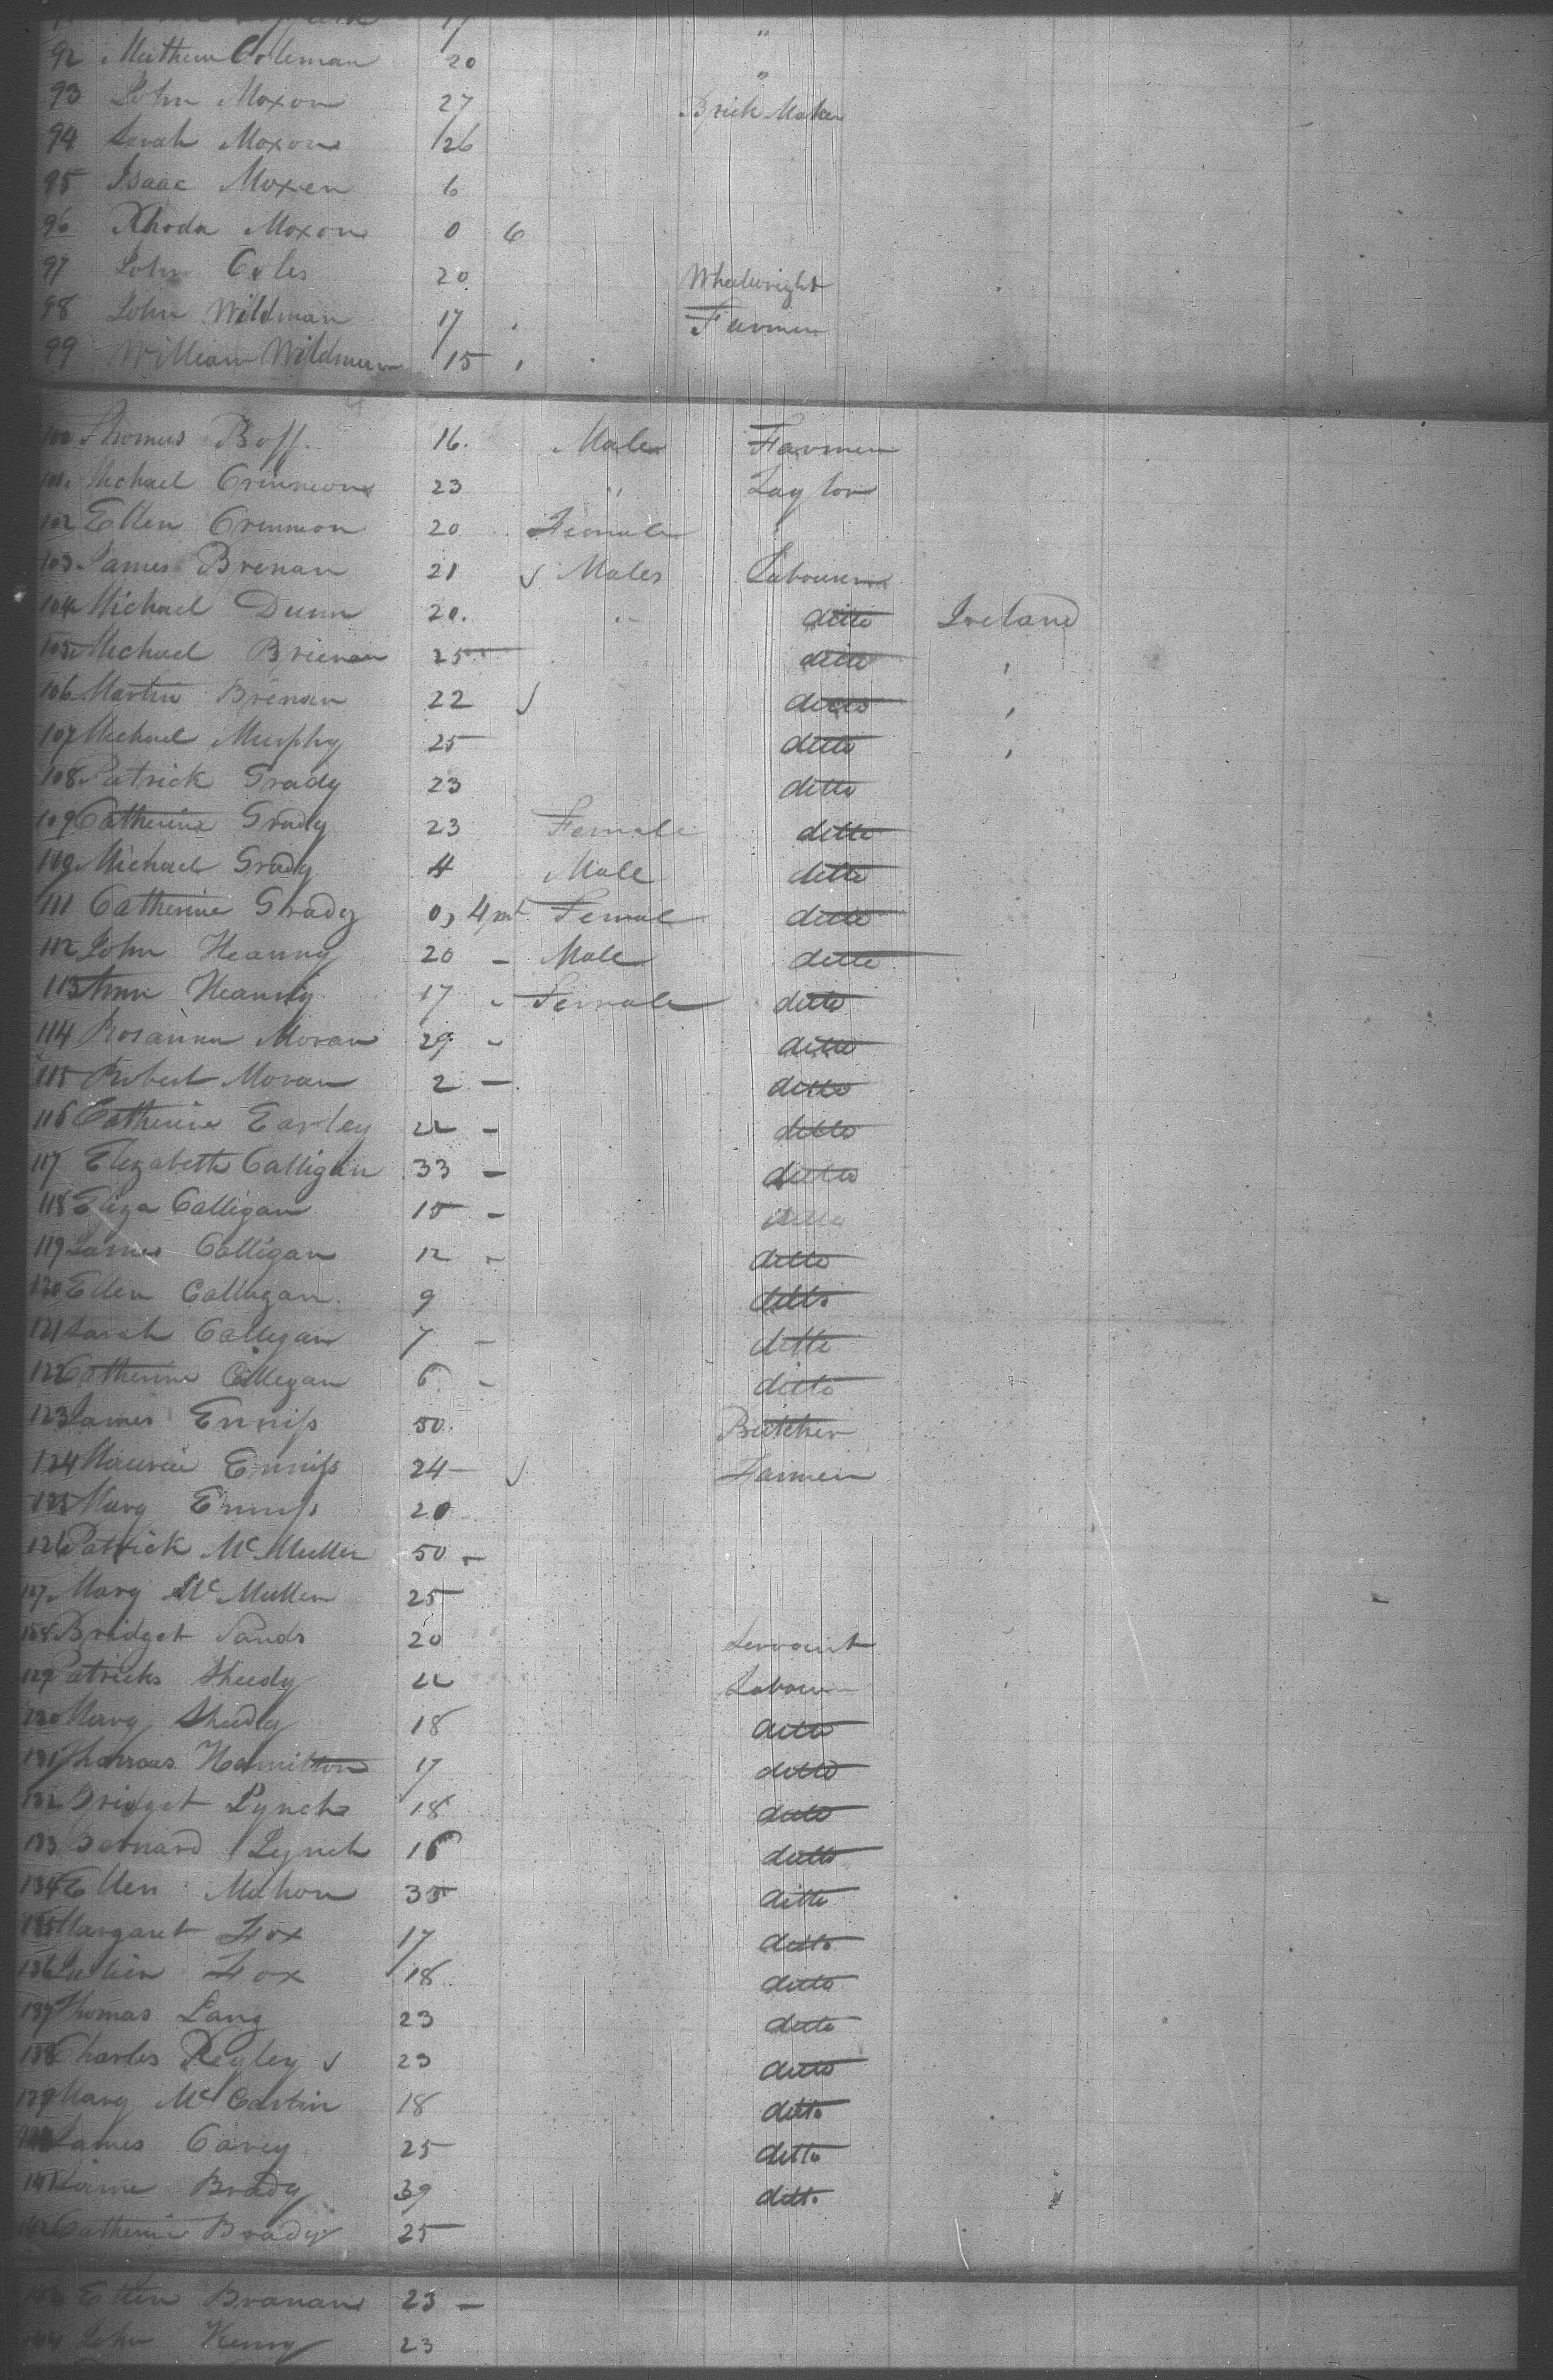 17 "
92 Mathew Coleman 20 "
93 John Moxon 27 Brick Maker
94 Sarah Moxon 26
95 Isaac Moxen 6
96 Rhoda Moxon 0 6
97 John Coles 20 Wheelwright
98 John Wildman 17 Farmer
99 William Wildman 15
100 Thomas Boff 16. Male Farmer
101 Michael Crinnion 23 " Taylor
102 Ellen Crennion 20 Female
103 James Brenan 21 Males Labourer
104 Michael Dunn 20. ditto Ireland
105 Michael Brienan 25 ditto
106 Martin Brenan 22 ditto
107 Michael Murphy 25 ditto
108 Patrick Grady 23 ditto
109 Catherine Grady 23 Female ditto
110 Michael Grady 4 Male ditto
111 Catherine Grady 0, 4 mt Female ditto
112 John Heanny 20 - Male ditto
113 Ann Heanny 17 - Female ditto
114 Rosanna Moran 29 - ditto
115 Robert Moran 2 - ditto
116 Catherine Earley 22 - ditto
117 Elezabeth Calligan 33 - ditto
118 Eliza Calligan 15 - ditto
119 James Calligan 12 - ditto
120 Ellen Calligan 9 ditto
121 Sarah Calligan 7 - ditto
122 Catherine Calligan 6 - ditto
123 James Enniss 50. Butcher
124 Maurice Enniss 24 - Farmer
125 Mary Enniss 20
126 Patrick McMullen 50 -
127 Mary McMullen 25
128 Bridget Sands 20 Servant
129 Patrick Sheedy 22 Labourer
130 Mary Sheedy 18 ditto
131 Thomas Hamilton 17 ditto
132 Bridget Lynch 18 ditto
133 Bernard Lynch 16 ditto
134 Ellen Mahon 35 ditto
135 Margaret Fox 17 ditto
136 Fox 18 ditto
137 Thomas Lang 23 ditto
138 Charles Regley 23 ditto
139 Mary McCartin 18 ditto
140 James Carey 25 ditto
141 Brady 39 ditto
142 Catherine Brady 25
143 Ellen Branan 23 -
144 John Henry 23